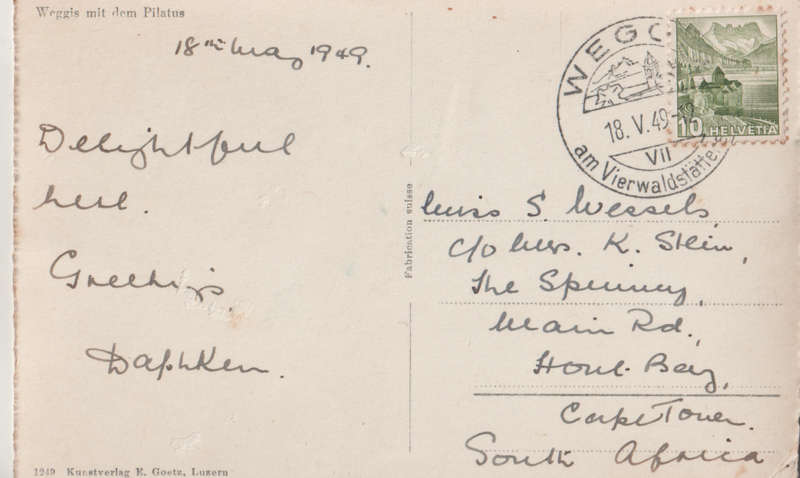 Weggis mit dem Pilatus
18th May 1949.
Delightful
here.
Greetings.
WEGG
18. V. 49-
VII
am Vierwaldstätte
10 HELVETIA
Fabrication suisse
Miss S. Wessels,
c/o Mrs. K. Stein,
The Spinney,
Main Rd.,
Hout Bay,
Cape Town.
South Africa
1249 Kunstverlag E. Goetz, Luzern